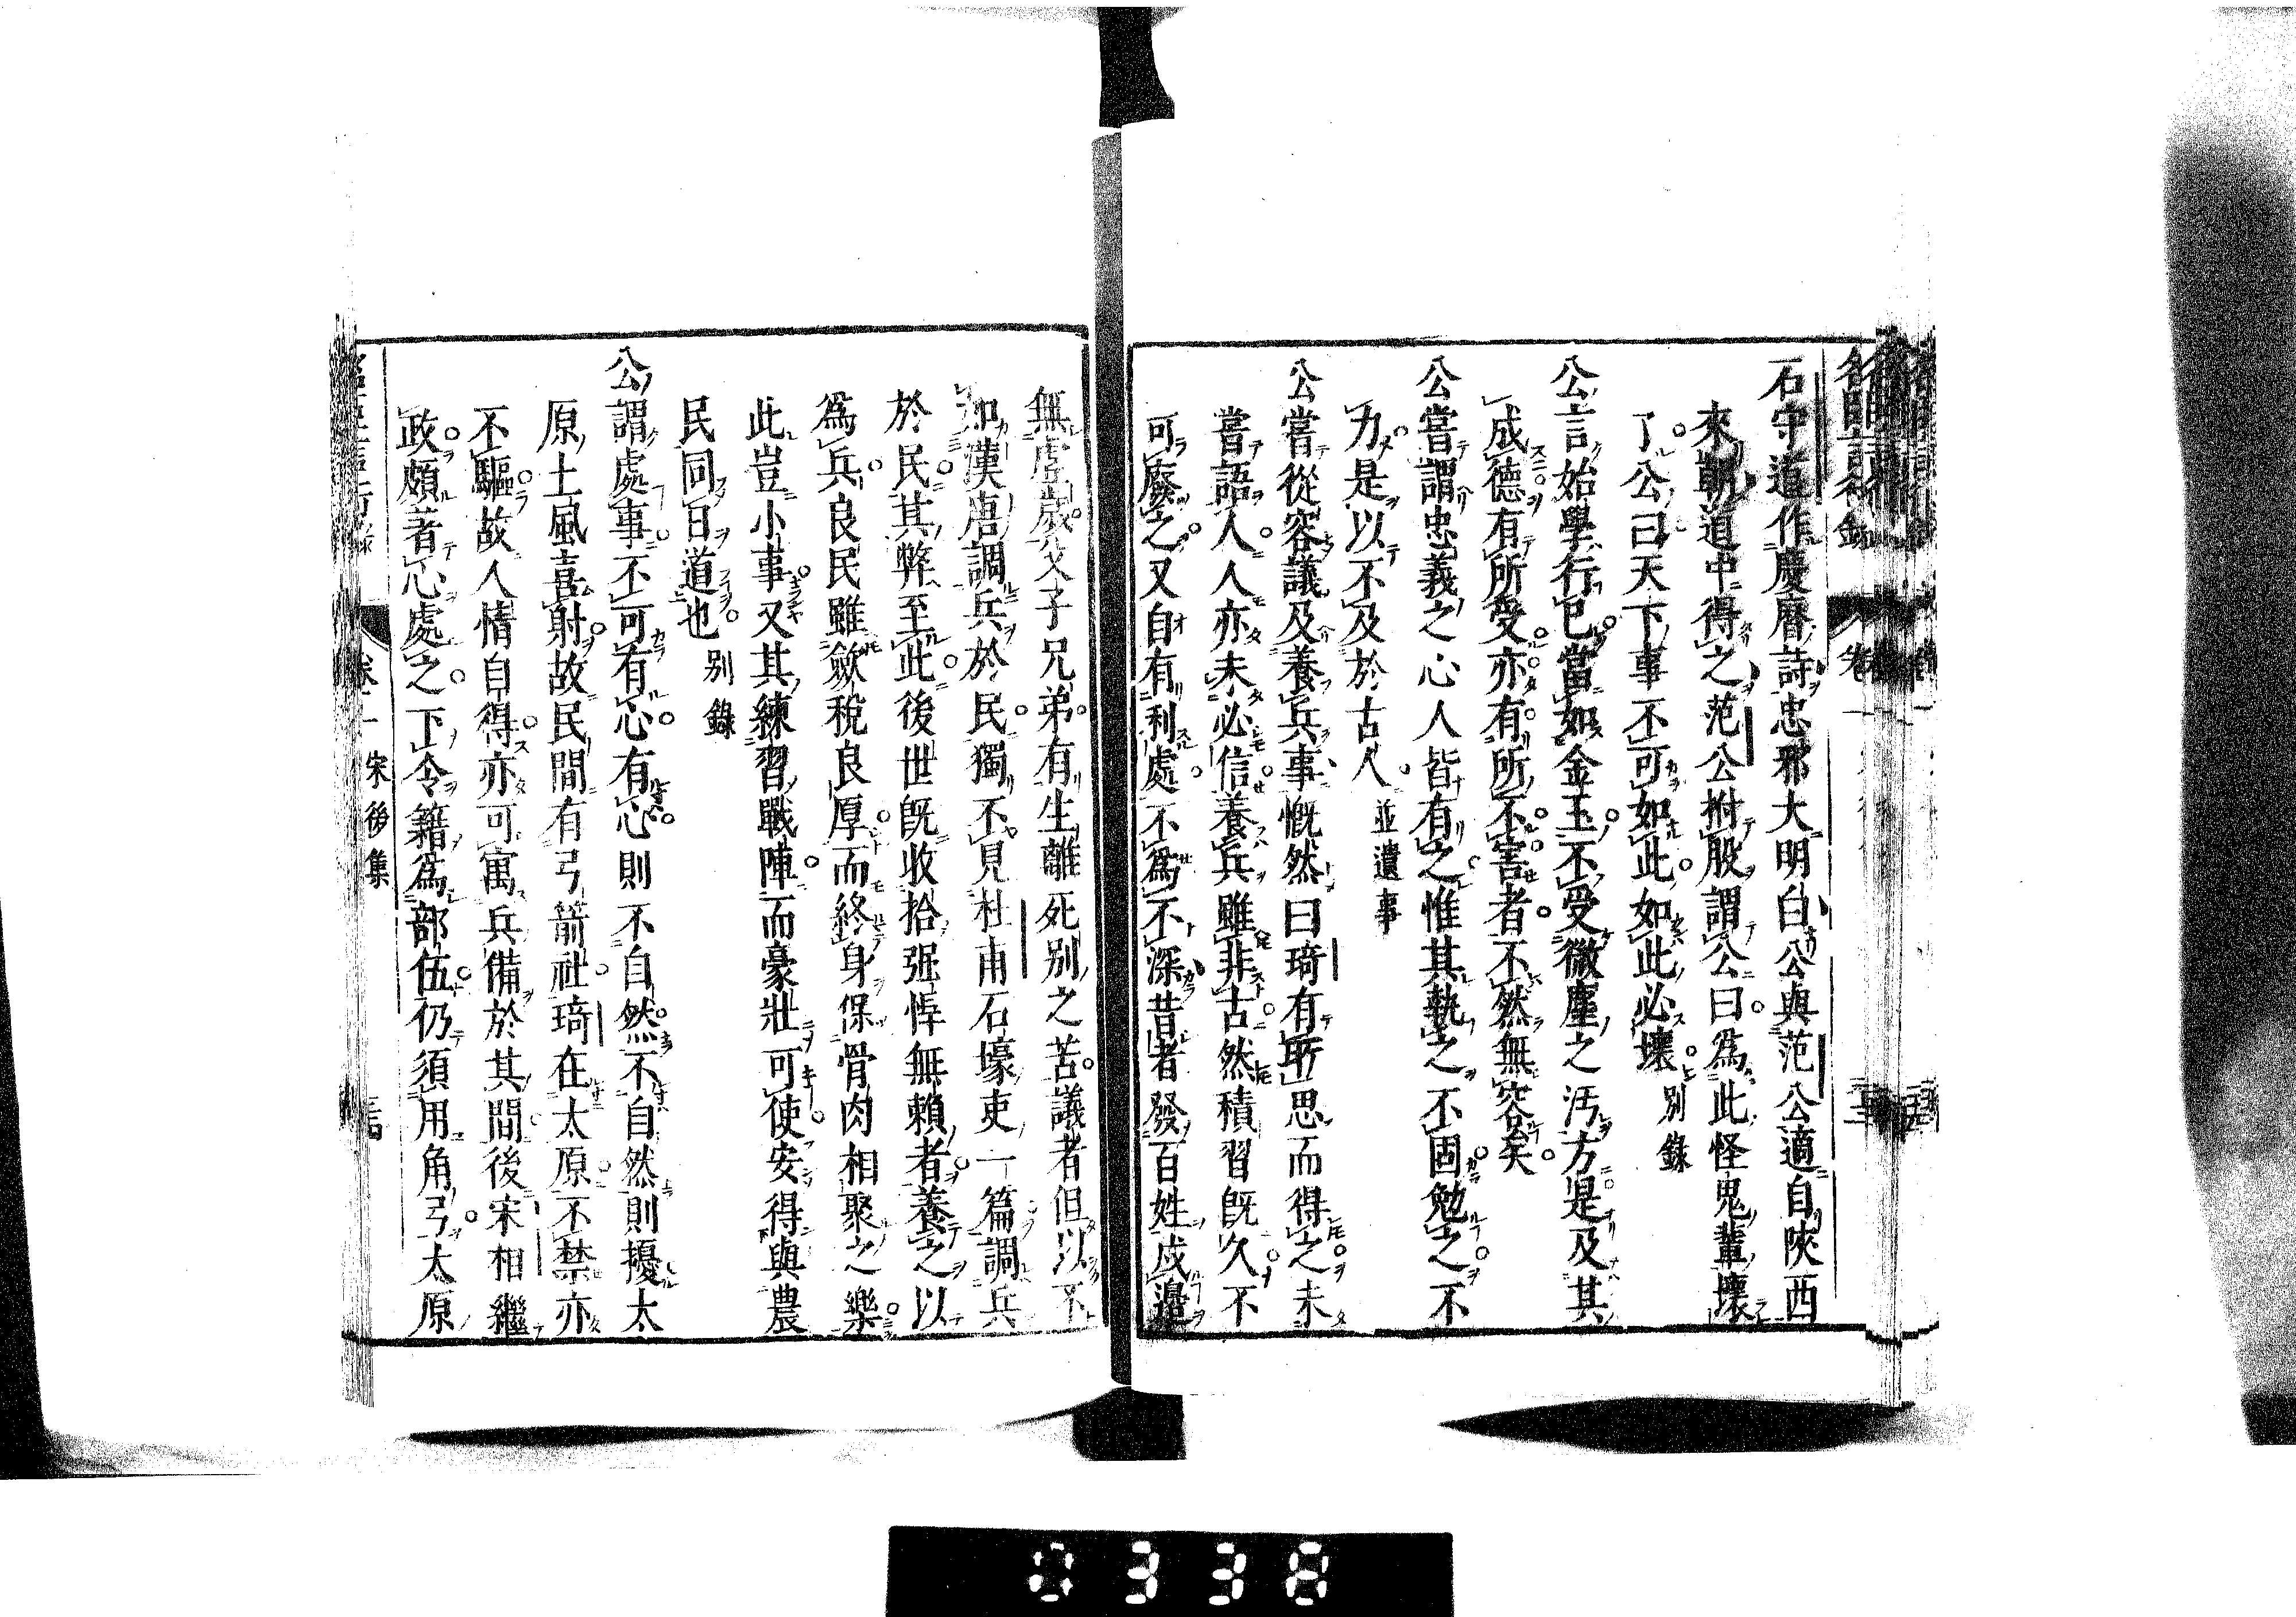 石守道作慶曆詩忠邪大明白公與范公適自陝西
來朝道中得之范公拊股謂公曰爲此怪鬼輩壞
了公曰天下事不可如此如此必壞 別錄
公言始學行己當如金玉不受微塵之汚方是及其
成德有所受亦有所不害者不然無容矣
公嘗謂忠義之心人皆有之惟其執之不固勉之不
力是以不及於古人 並遺事
公嘗從容議及養兵事慨然曰琦有所思而得之未
嘗語人人亦未必信養兵雖非古然積習既久不
可廢之又自有利處不爲不深昔者發百姓戍邊
無虛歲父子兄弟有生離死别之苦議者但以不
如漢唐調兵於民獨不見杜甫石壕吏一篇調兵
於民其弊至此後世既收拾强悍無賴者養之以
爲兵良民雖歛稅良厚而終身保骨肉相聚之樂
此豈小事又其練習戰陣而豪壯可使安得與農
民同日道也 别錄
公謂處事不可有心有心則不自然不自然則擾太
原土風喜射故民間有弓箭社琦在太原不禁亦
不驅故人情自得亦可寓兵備於其間後宋相繼
政頗著心處之下令籍爲部伍仍須用角弓太原
宋後集
0338